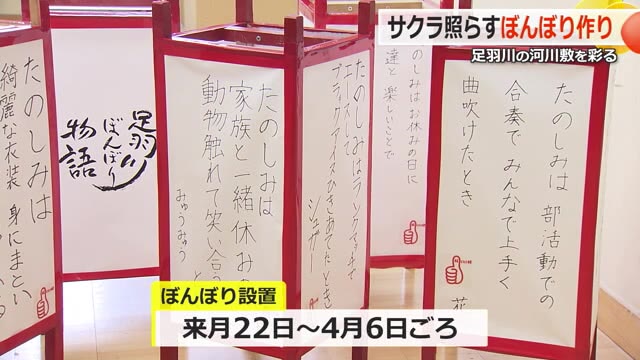 サクラ照らすぼんぼり作り
足羽川の河川敷を彩る
たのしみは 部活動での
合奏で みんなで上手く
曲吹けたとき
花
のしみはお休みの日に
達と 楽しいことで
たのしみはランクマッチで
エースして
シュガー
たのしみは
家族と一緒 休みの
動物触れて 笑い合う
みゅうみゅう
足羽川
ぼんぼり
物語
たのしみは
綺麗な衣装 身にまとい
ぼんぼり設置
来月22日～4月6日ごろ